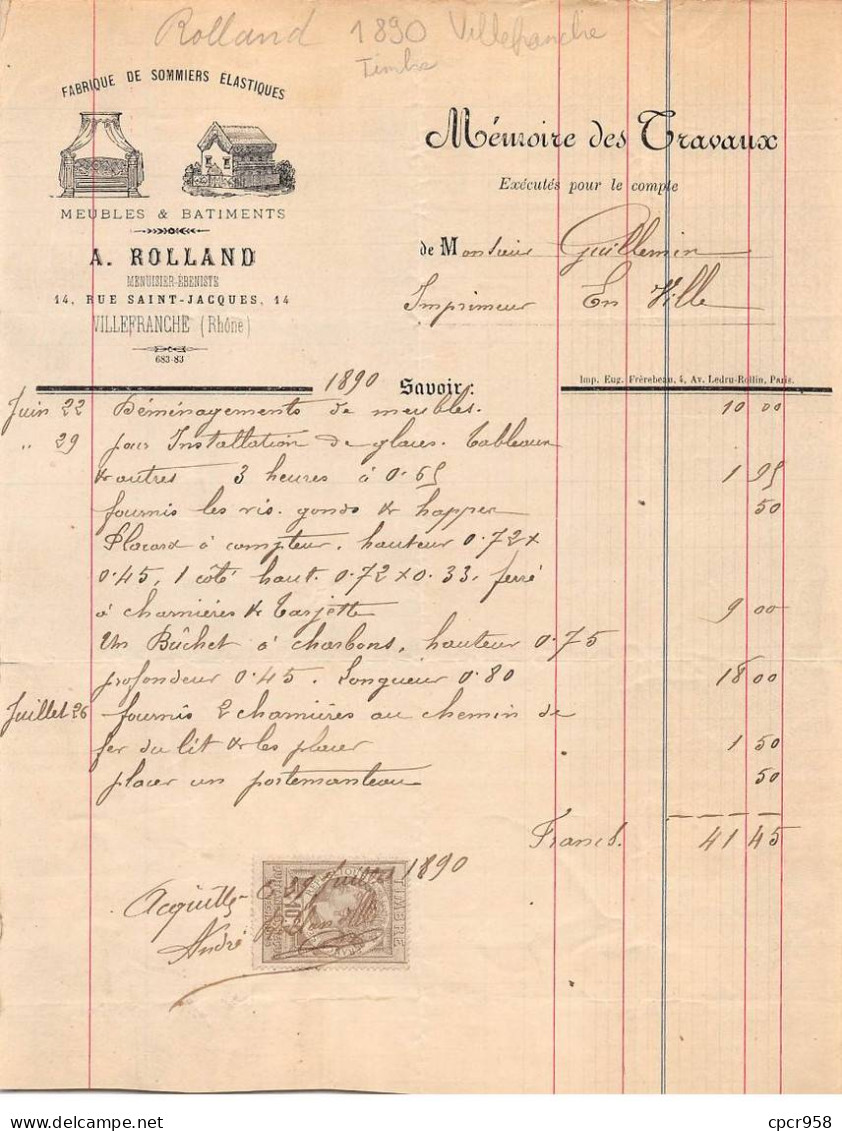 Rolland 1890 Villefranche
Timbre
FABRIQUE DE SOMMIERS ÉLASTIQUES
MEUBLES & BATIMENTS
A. ROLLAND
MENUISIER-ÉBENISTE
14, RUE SAINT-JACQUES, 14
VILLEFRANCHE (Rhône)
683-83
Mémoire des Travaux
Exécutés pour le compte
de Monsieur Guillemin
Imprimeur En Ville
Imp. Eug. Frèrebeau, 4, Av. Ledru-Rollin, Paris.
1890 Savoir :
Juin 22 Déménagements de meubles. 10 00
" 29 pour Installation de glaces. tableaux
& autres 3 heures à 0.65 1 95
fournis les vis. gonds & happes 50
Placard à compteur. hauteur 0.72 x
0.45, 1 côté haut. 0.72 x 0.33. ferré
à charnières & targette 9 00
Un Bûchet à charbons, hauteur 0.75
profondeur 0.45. Longueur 0.80 18 00
Juillet 26 fournis 2 charnières au chemin de
fer du lit & les placer 1 50
placer un portemanteau 50
Francs. 41 45
Acquitté Juillet 1890
André
TIMBRE
10c
cpcr958